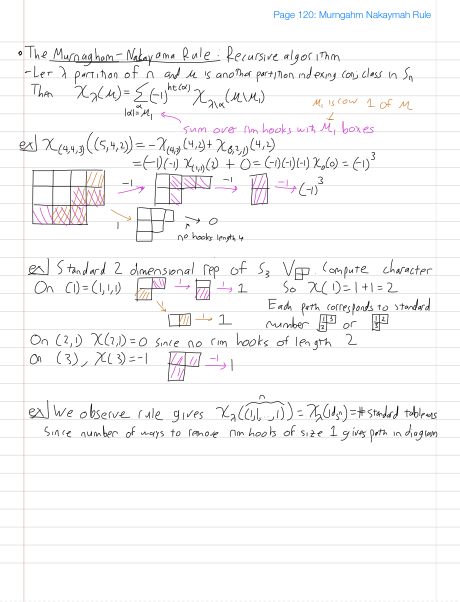 Page 120: Murngahm Nakaymah Rule
• The Murnagham-Nakayama Rule: Recursive algorithm
- Let λ partition of n and μ is another partition indexing conj class in Sₙ
Then χ_λ(μ) = Σ_{|α|=μ₁} (-1)^{ht(α)} χ_{λ\α}(μ\μ₁)
μ₁ is row 1 of μ
sum over rim hooks with μ₁ boxes
ex] χ_{(4,4,3)}((5,4,2)) = -χ_{(4,2)}(4,2) + χ_{(3,2,1)}(4,2)
= (-1)(-1) χ_{(1,1)}(2) + 0 = (-1)(-1)(-1) χ₀(0) = (-1)³
-1 -1 -1 (-1)³
1 0
no hooks length 4
ex] Standard 2 dimensional rep of S₃ V. Compute character
On (1)=(1,1,1) 1 1 1 So χ(1)=1+1=2
1 1 Each path corresponds to standard
number 1 3 2 or 1 2 3
On (2,1) χ(2,1)=0 since no rim hooks of length 2
On (3), χ(3)=-1 -1 1
n
ex] We observe rule gives χ_λ((1,1,..,1)) = χ_λ(id_{Sₙ}) = # standard tableaus
since number of ways to remove rim hooks of size 1 gives path in diagram